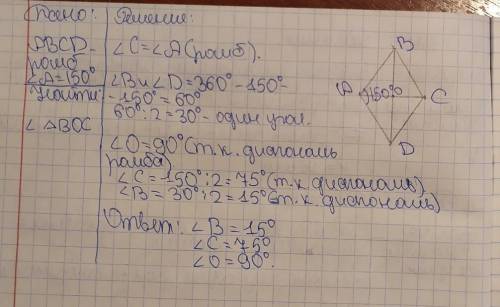 Дано:
ABCD-
ромб
∠A=150°
Найти:
∠ △BOC
Решение:
∠C=∠A(ромб).
∠B и ∠D=360°-150°-
-150°=60°
60°:2=30°- один угол.
∠O=90°(т.к. диагональ
ромба)
∠C=150°:2=75°(т.к. диагональ)
∠B=30°:2=15°(т.к. диагональ)
Ответ: ∠B=15°
∠C=75°
∠O=90°.
B
A
150°
O
C
D